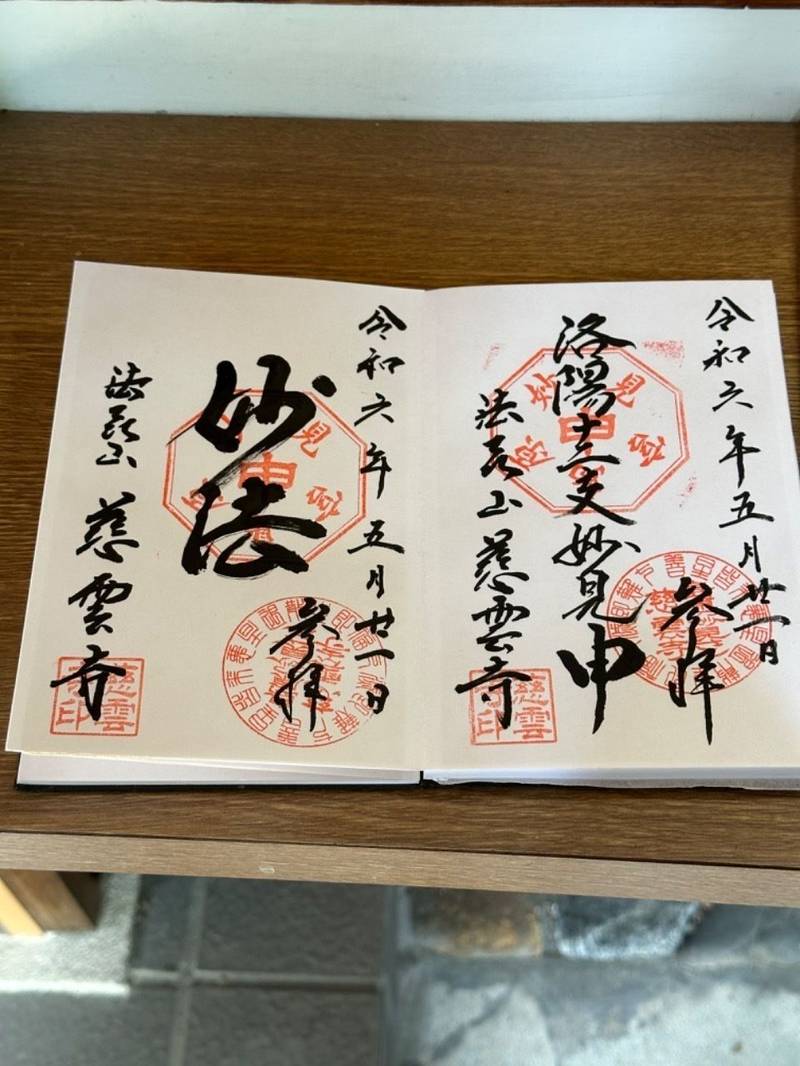 令和六年五月廿一日
参拝
洛陽十二支妙見申
法華山 慈雲寺
慈雲寺印
令和六年五月廿一日
参拝
妙法
法華山 慈雲寺
慈雲寺印